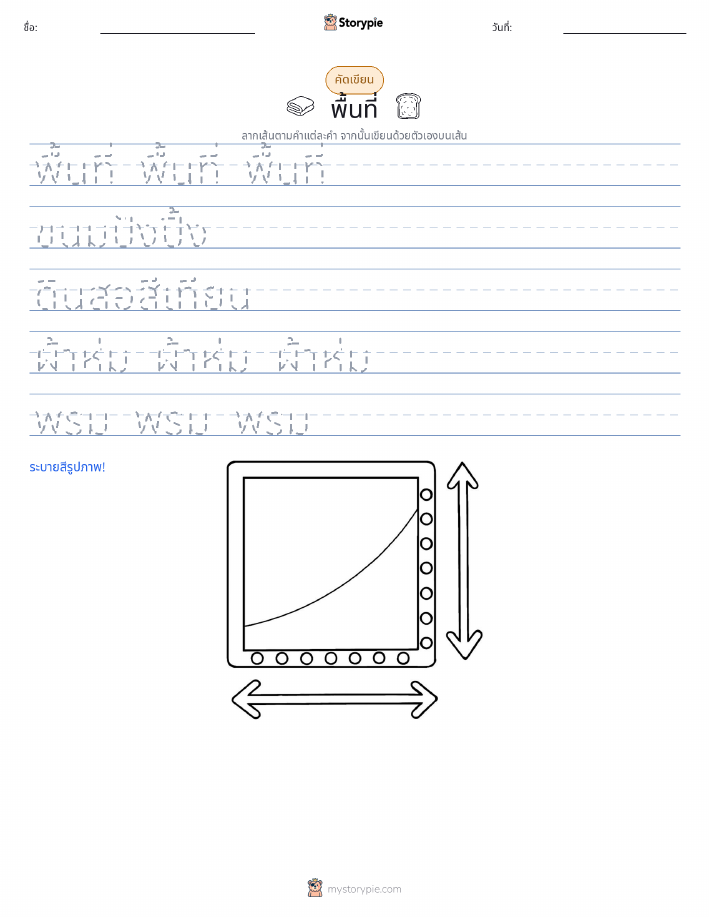 ชื่อ:
Storypie
วันที่:
คัดเขียน
พื้นที่
ลากเส้นตามคำแต่ละคำ จากนั้นเขียนด้วยตัวเองบนเส้น
พื้นที่ พื้นที่ พื้นที่
ขนมปังปิ้ง
ดินสอสีเทียน
ผ้าห่ม ผ้าห่ม ผ้าห่ม
พรม พรม พรม
ระบายสีรูปภาพ!
mystorypie.com